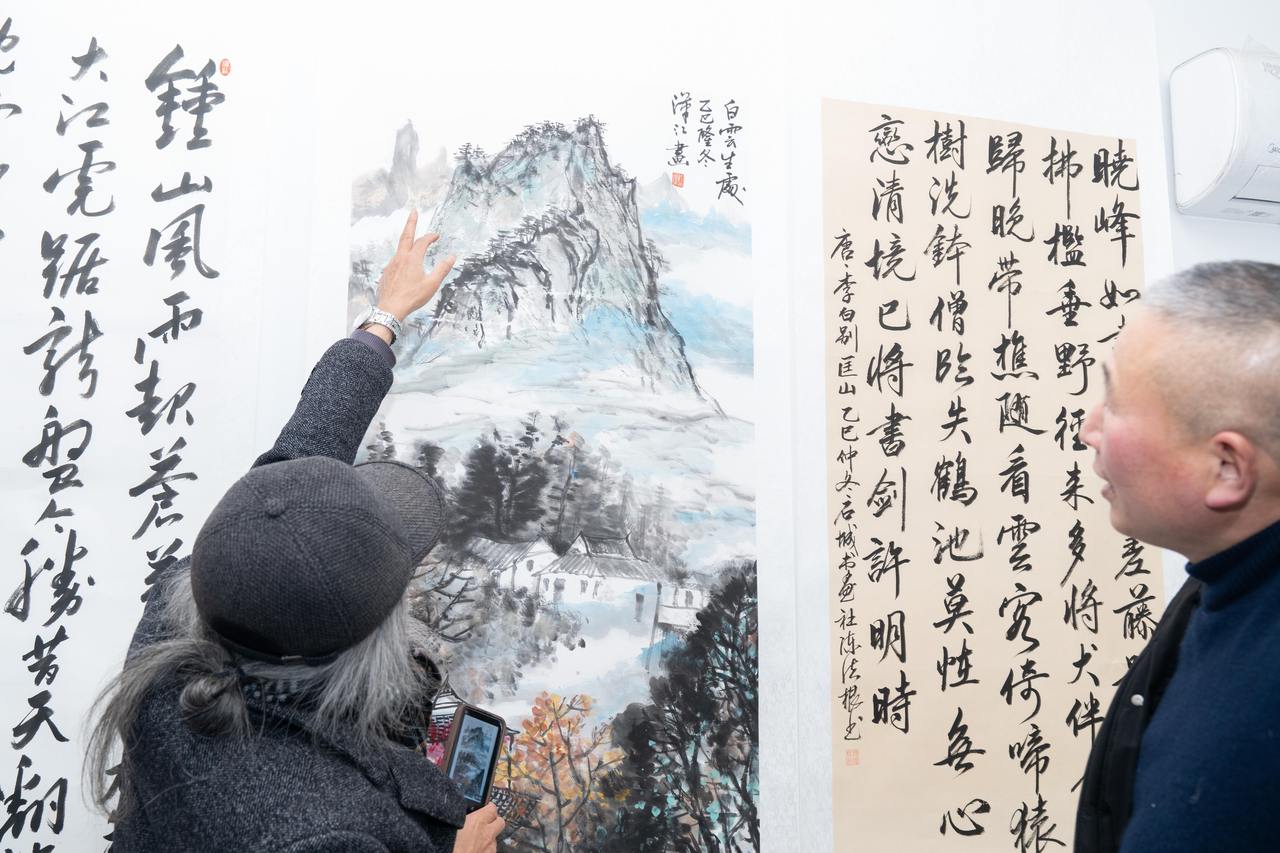 鍾山風雨起蒼
大江虎踞龍盤今勝昔天翻
白雲生處
乙巳隆冬
漢江畫
曉峰如
差藤
拂檻垂野徑来多將犬伴
歸晚带樵随看雲客倚啼猿
樹洗鉢僧临失鶴池莫恠無心
戀清境已將書劍許明時
唐李白别匡山乙巳仲冬后城书画社陈法根书